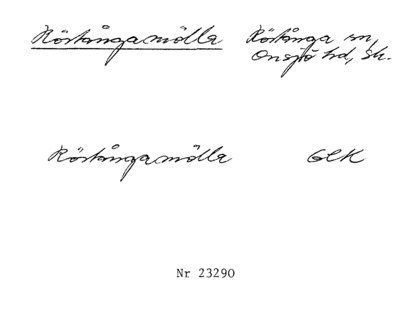 Röstångamölla Röstånga sn,
Onsjö hd, Sk.
Röstångamölla GEK
Nr 23290